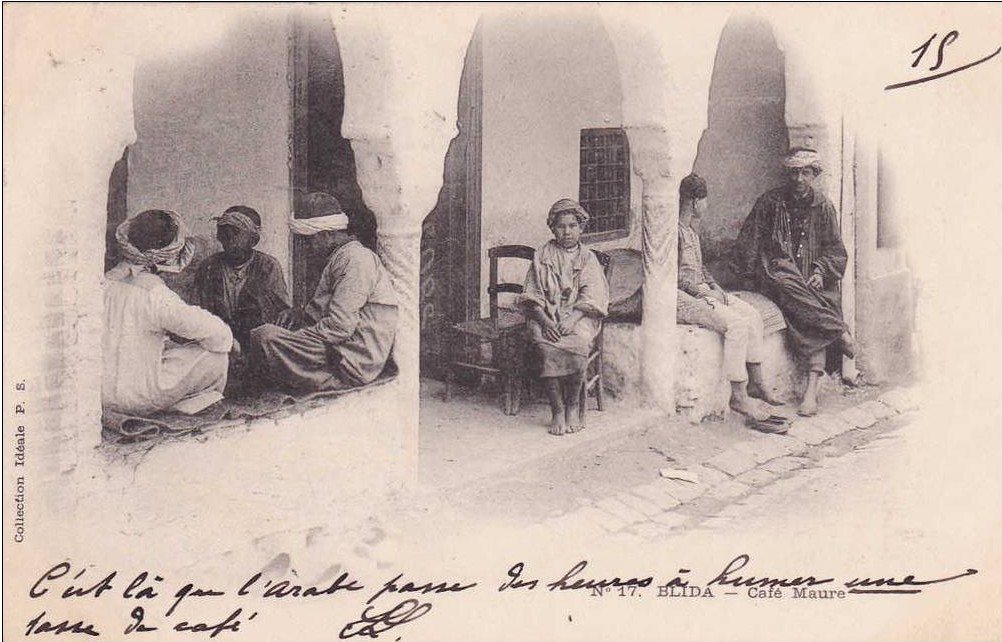 15
Collection Idéale P. S.
C'est là que l'arabe passe des heures à humer une
N° 17. BLIDA — Café Maure
tasse de café